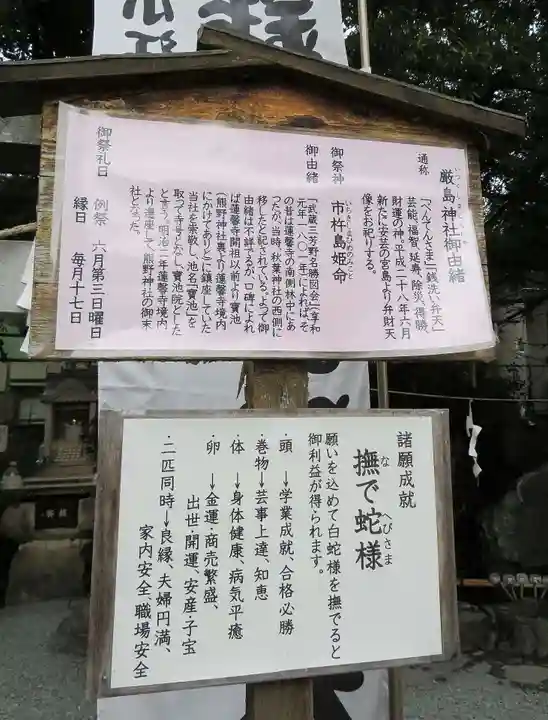 厳島神社御由緒
いつくしまじんじゃごゆいしょ
通称
「べんてんさま」「銭洗い弁天」
芸能、福智、延寿、除災、得勝
財運の神。平成二十八年六月
新たに安芸の宮島より弁財天
像をお祀りする。
御祭神
市杵島姫命
いちきしまひめのみこと
御由緒
「武蔵三芳野名勝図会」(享和
元年・一八〇一年)によれば、そ
の昔は蓮馨寺の南側林中にあ
つたが、当時、秋葉神社の西側に
移したと記されている。よつて御
由緒は不詳なるが、口碑によれ
ば蓮馨寺開祖以前より寶池
(熊野神社裏より蓮馨寺境内
にかけてあり)とこに鎮座していた
当社を崇敬し、池名「寶池」を
取つて寺号となし寶池院とした
と言う。明治二年蓮馨寺境内
より遷座して熊野神社の御末
社となつた。
御祭礼日
例祭 六月第三日曜日
縁日 毎月十七日
諸願成就
撫で蛇様
な へびさま
願いを込めて白蛇様を撫でると
御利益が得られます。
・頭 →学業成就、合格必勝
・巻物→芸事上達、知恵
・体 →身体健康、病気平癒
・卵 →金運・商売繁盛、
出世・開運、安産・子宝
・二匹同時→良縁、夫婦円満、
家内安全、職場安全